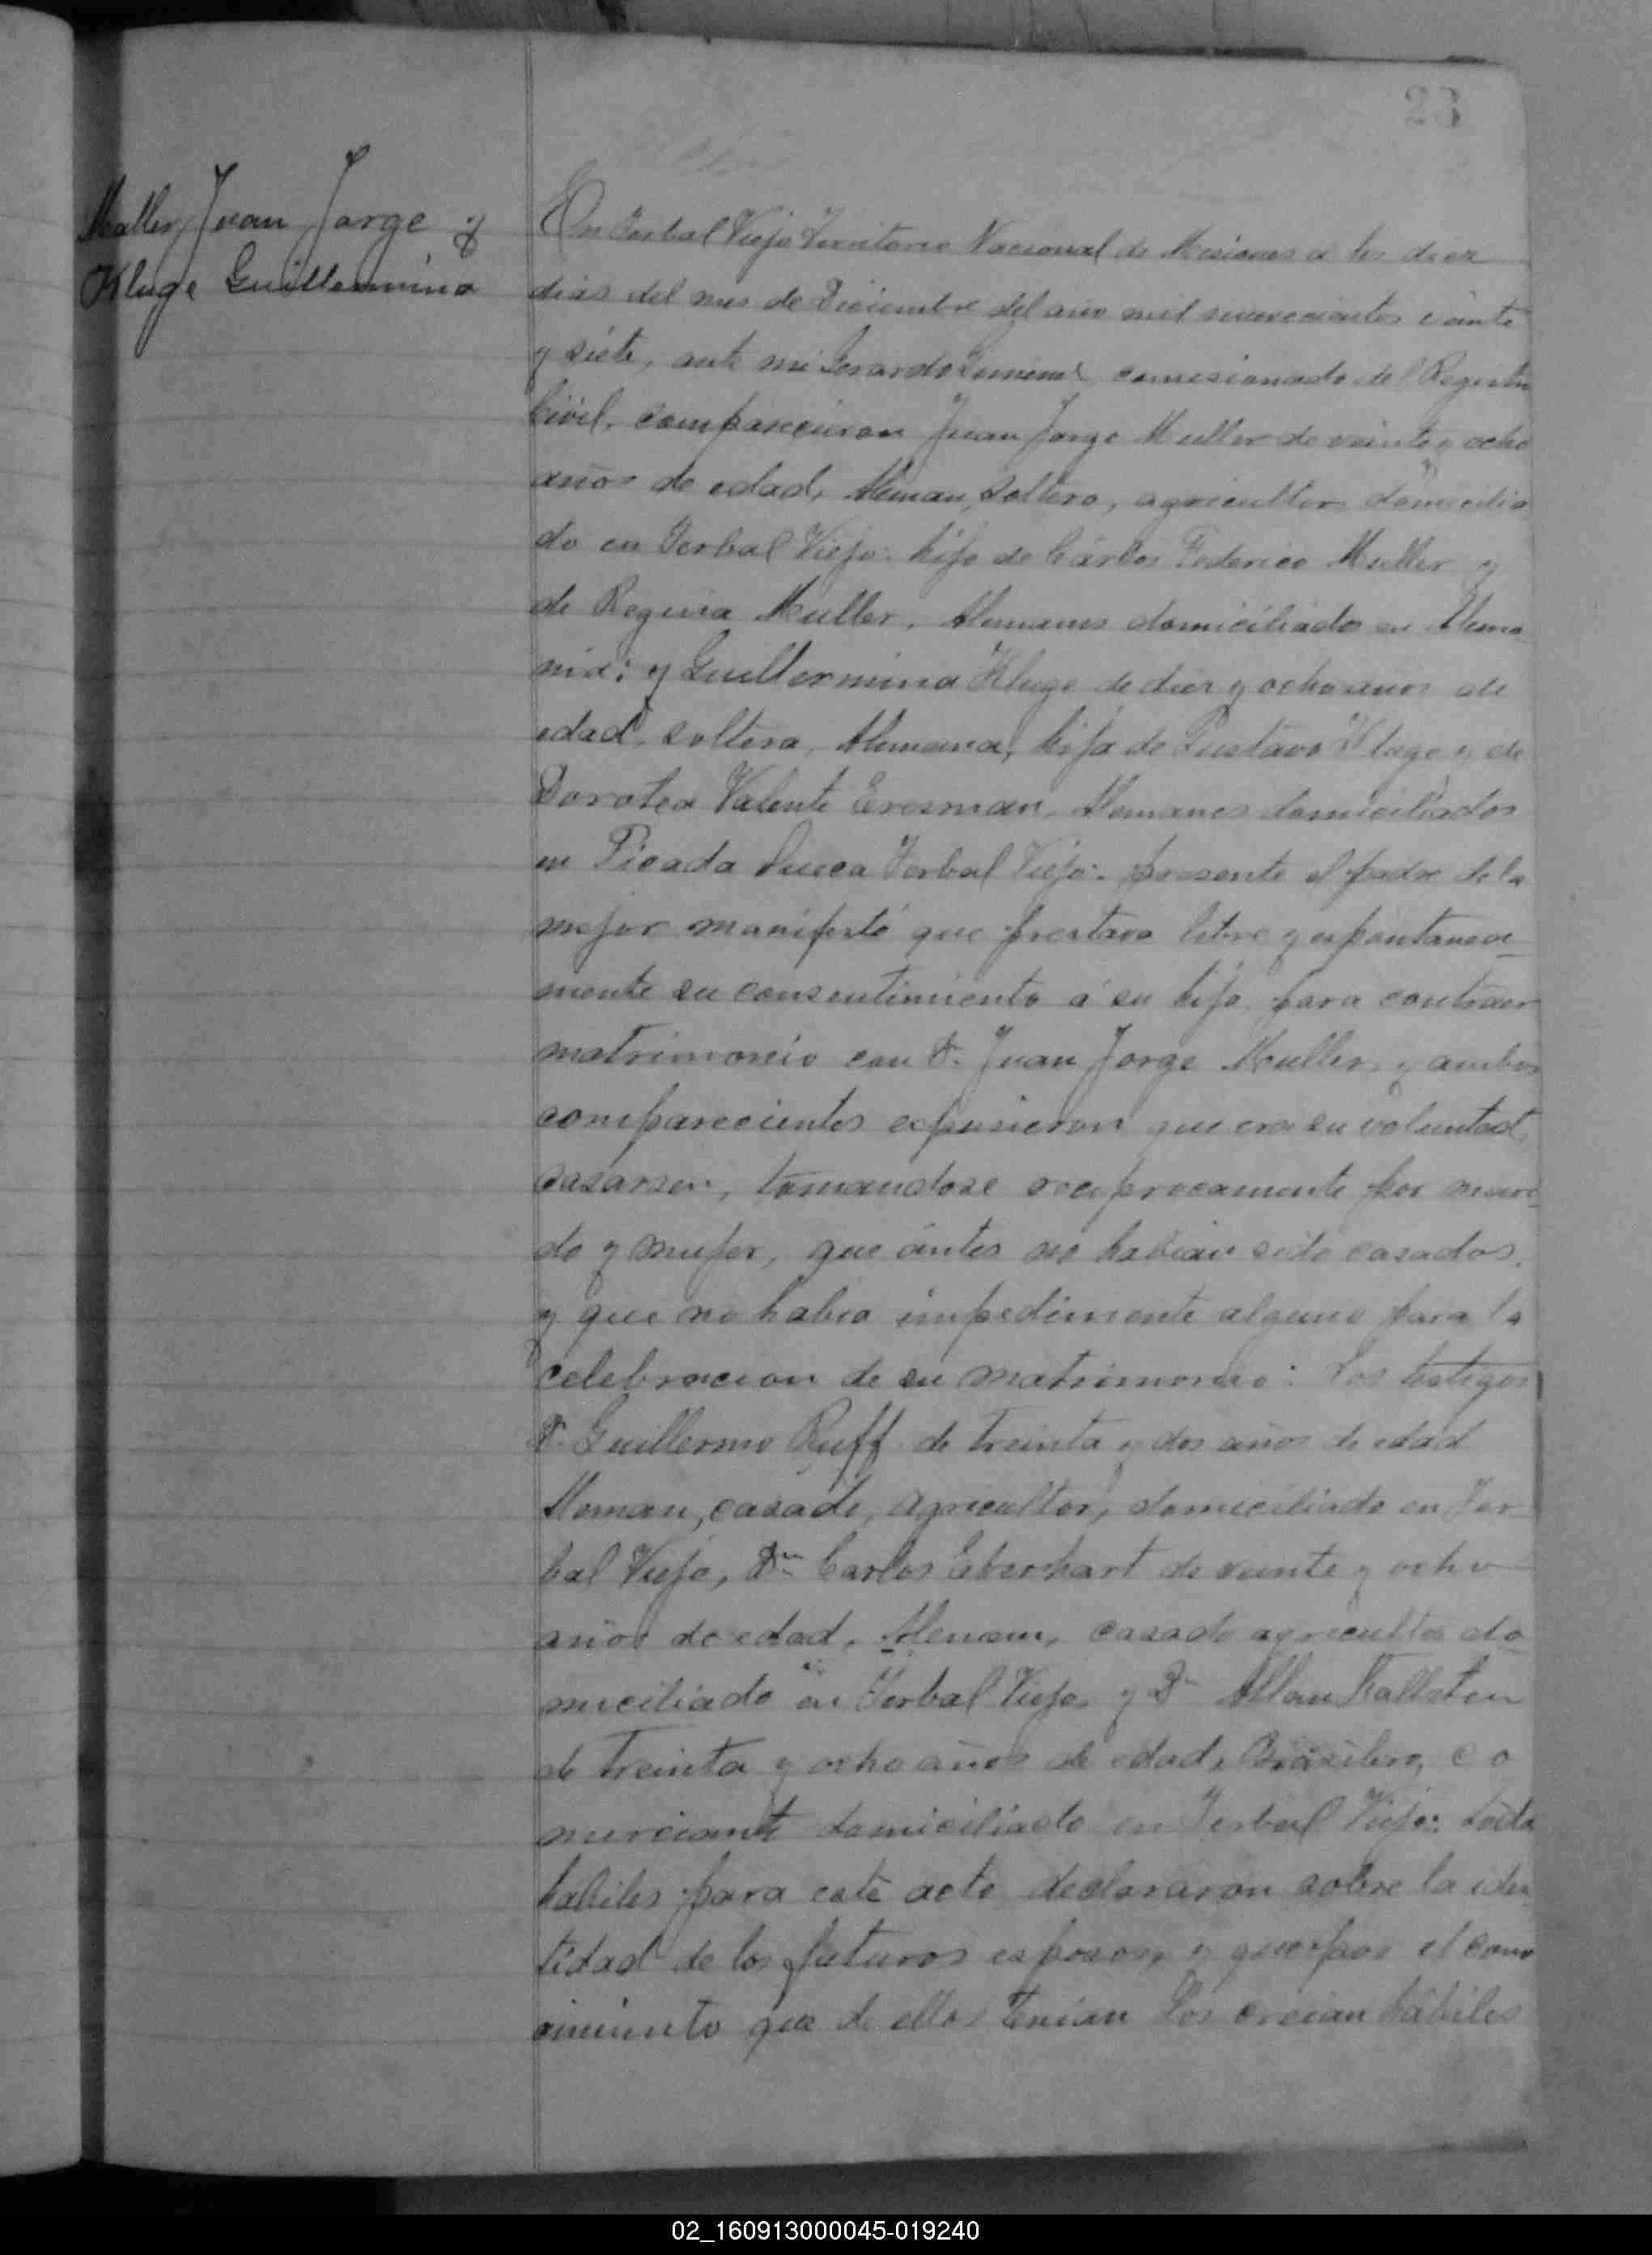 23
Muller Juan Jorge y
Kluge Guillermina
En Yerbal Viejo Territorio Nacional de Misiones a los diez
dias del mes de Diciembre del año mil novecientos veinte
y siete, ante mi Gerardo comisionado del Registro
Civil, comparecieron Juan Jorge Muller de veinte y ocho
años de edad, Aleman, soltero, agricultor domicilia
do en Yerbal Viejo: hijo de Cárlos Federico Muller y
de Regina Muller, Alemanes domiciliado en Alema
nia: y Guillermina Kluge de diez y ocho anos de
edad, soltera, Alemana, hija de Gustavo Kluge y de
Dorotea Valente Eresman, Alemanes domiciliados
en Picada Sueca Yerbal Viejo: presente el padre de la
mejor manifestó que prestava libre y espontanea-
mente su consentimiento á su hija para contraer
matrimonio con D. Juan Jorge Muller, y ambos
comparecientes expusieron que era su voluntad,
casarsen, tomandose reciprocamente por mari-
do y mujer, que ántes no habian sido casados,
y que no habia impedimente alguno para la
celebracion de su matrimonio: Los testigos
D. Guillermo Ruff de treinta y dos años de edad
Aleman, casado, agricultor, domiciliado en Yer-
bal Viejo, Dn Carlos Eberhart de veinte y ocho
años de edad, Aleman, casado agricultor do
miciliado en Yerbal Viejo y Dn Allan Kallsten
de treinta y ocho años de edad, Brasilero, co
merciante domiciliado en Yerbal Viejo: todos
habiles para este acto declararon sobre la iden
tidad de los futuros esposos, y que por el cono
cimiento que de ellos tenian los creian hábiles
02_160913000045-019240